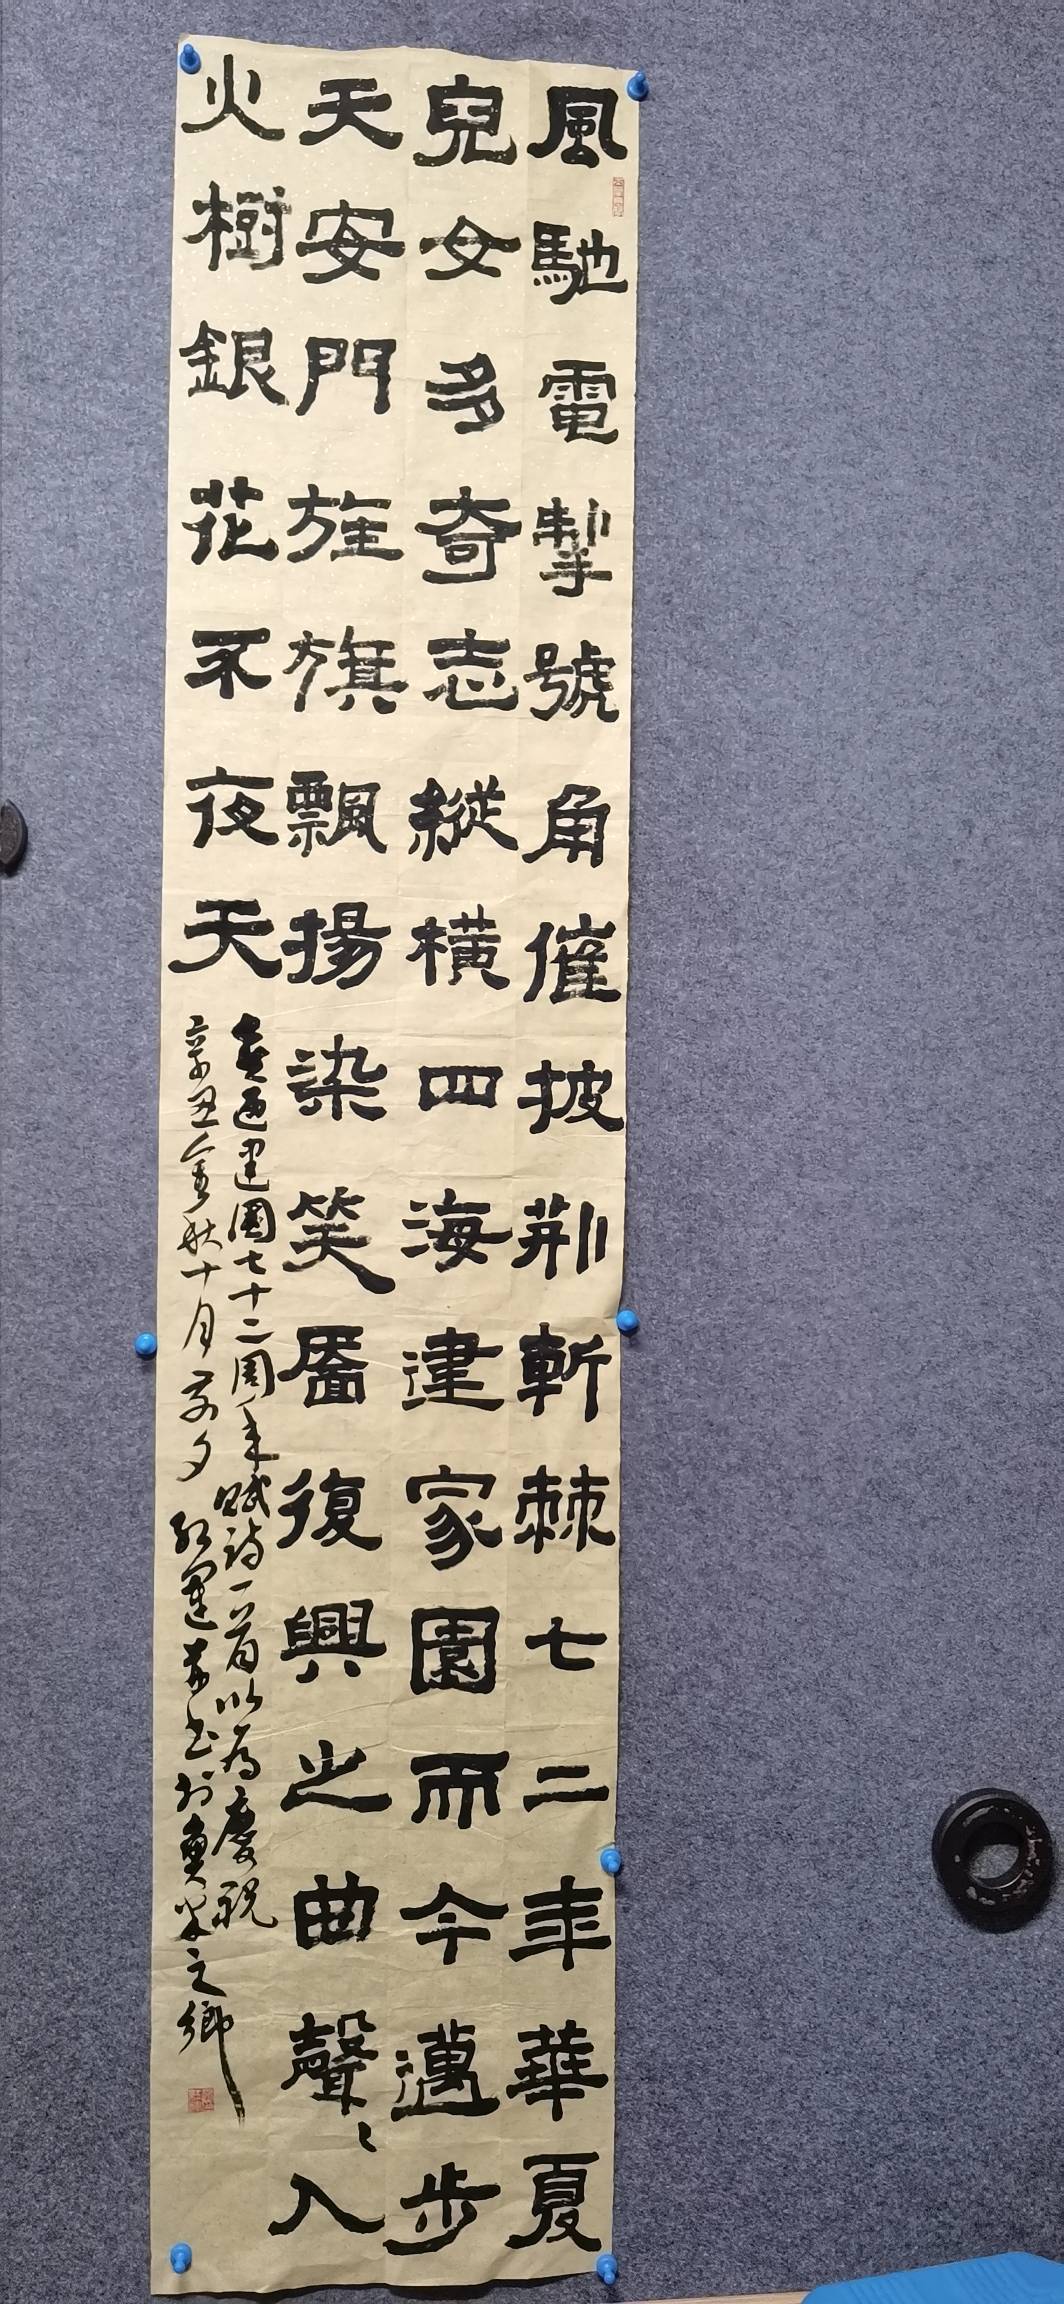 風馳電掣號角催披荆斬棘七二年華夏
兒女多奇志縱橫四海建家園而今邁步
天安門旌旗飄揚染笑靨復興之曲聲〻入
火樹銀花不夜天
喜迎建國七十二周年賦詩一首以为慶祝
辛丑金秋十月前夕 红運书於魚米之鄉